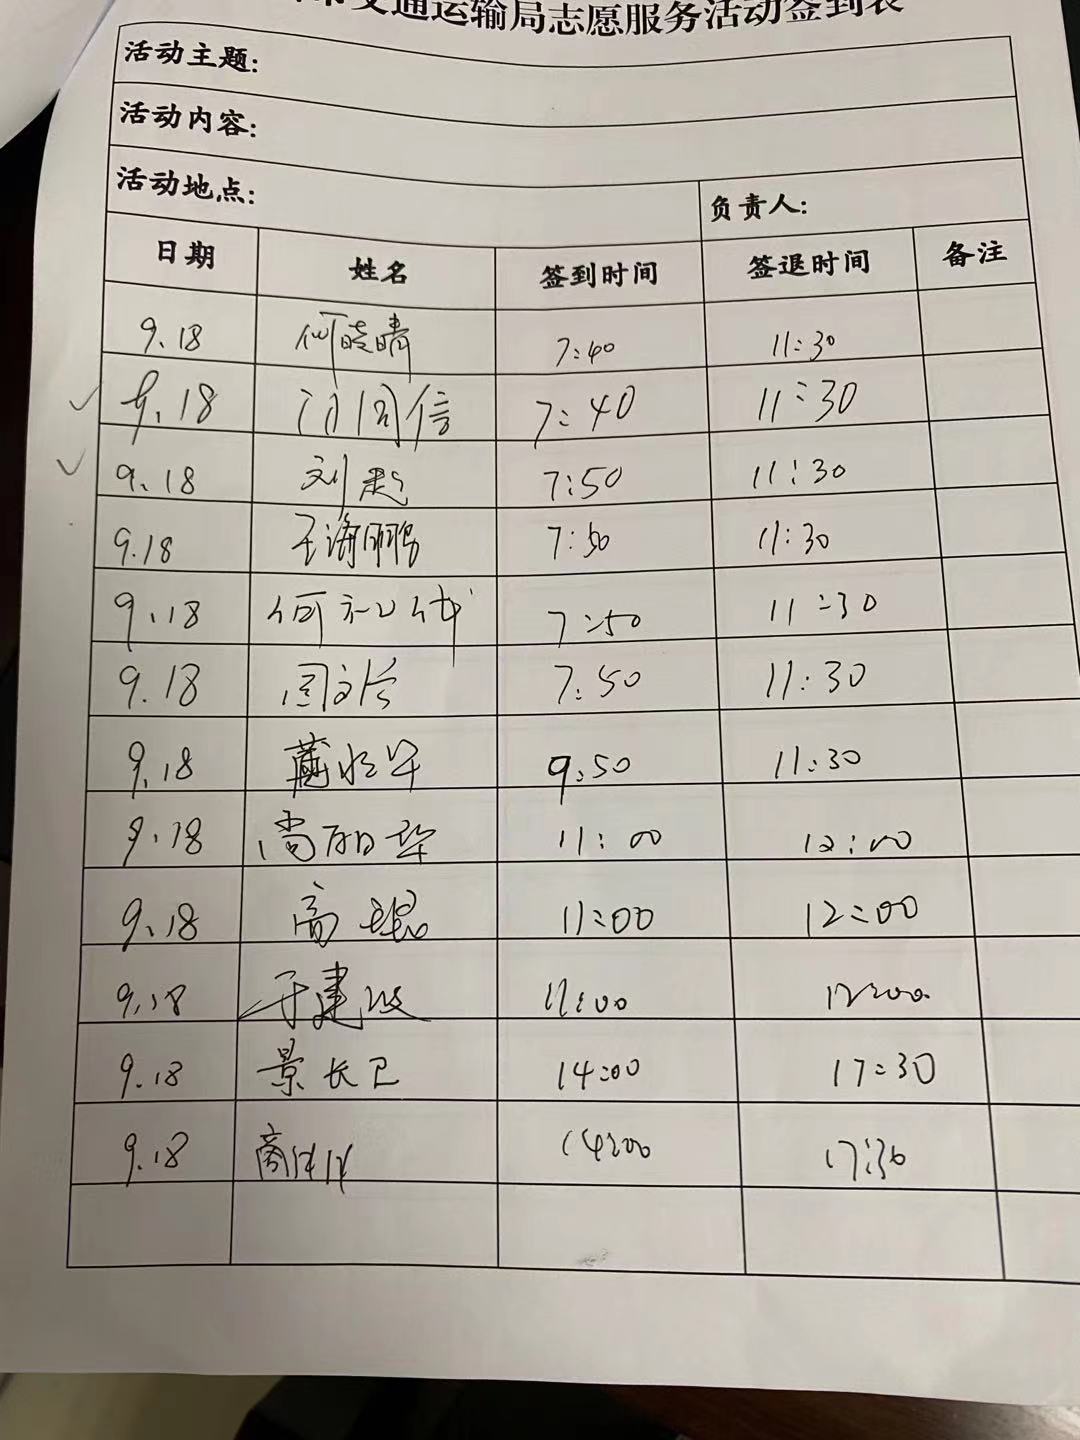 交通运输局志愿服务活动签到表
活动主题:
活动内容:
活动地点: 负责人:
日期 姓名 签到时间 签退时间 备注
9.18 何晓晴 7:40 11:30
9.18 7:40 11:30
9.18 刘超 7:50 11:30
9.18 王海鹏 7:50 11:30
9.18 7:50 11:30
9.18 7:50 11:30
9.18 9:50 11:30
9.18 11:00 12:00
9.18 高琨 11:00 12:00
9.18 于建波 11:00 12:00
9.18 景长卫 14:00 17:30
9.18 14:00 17:30